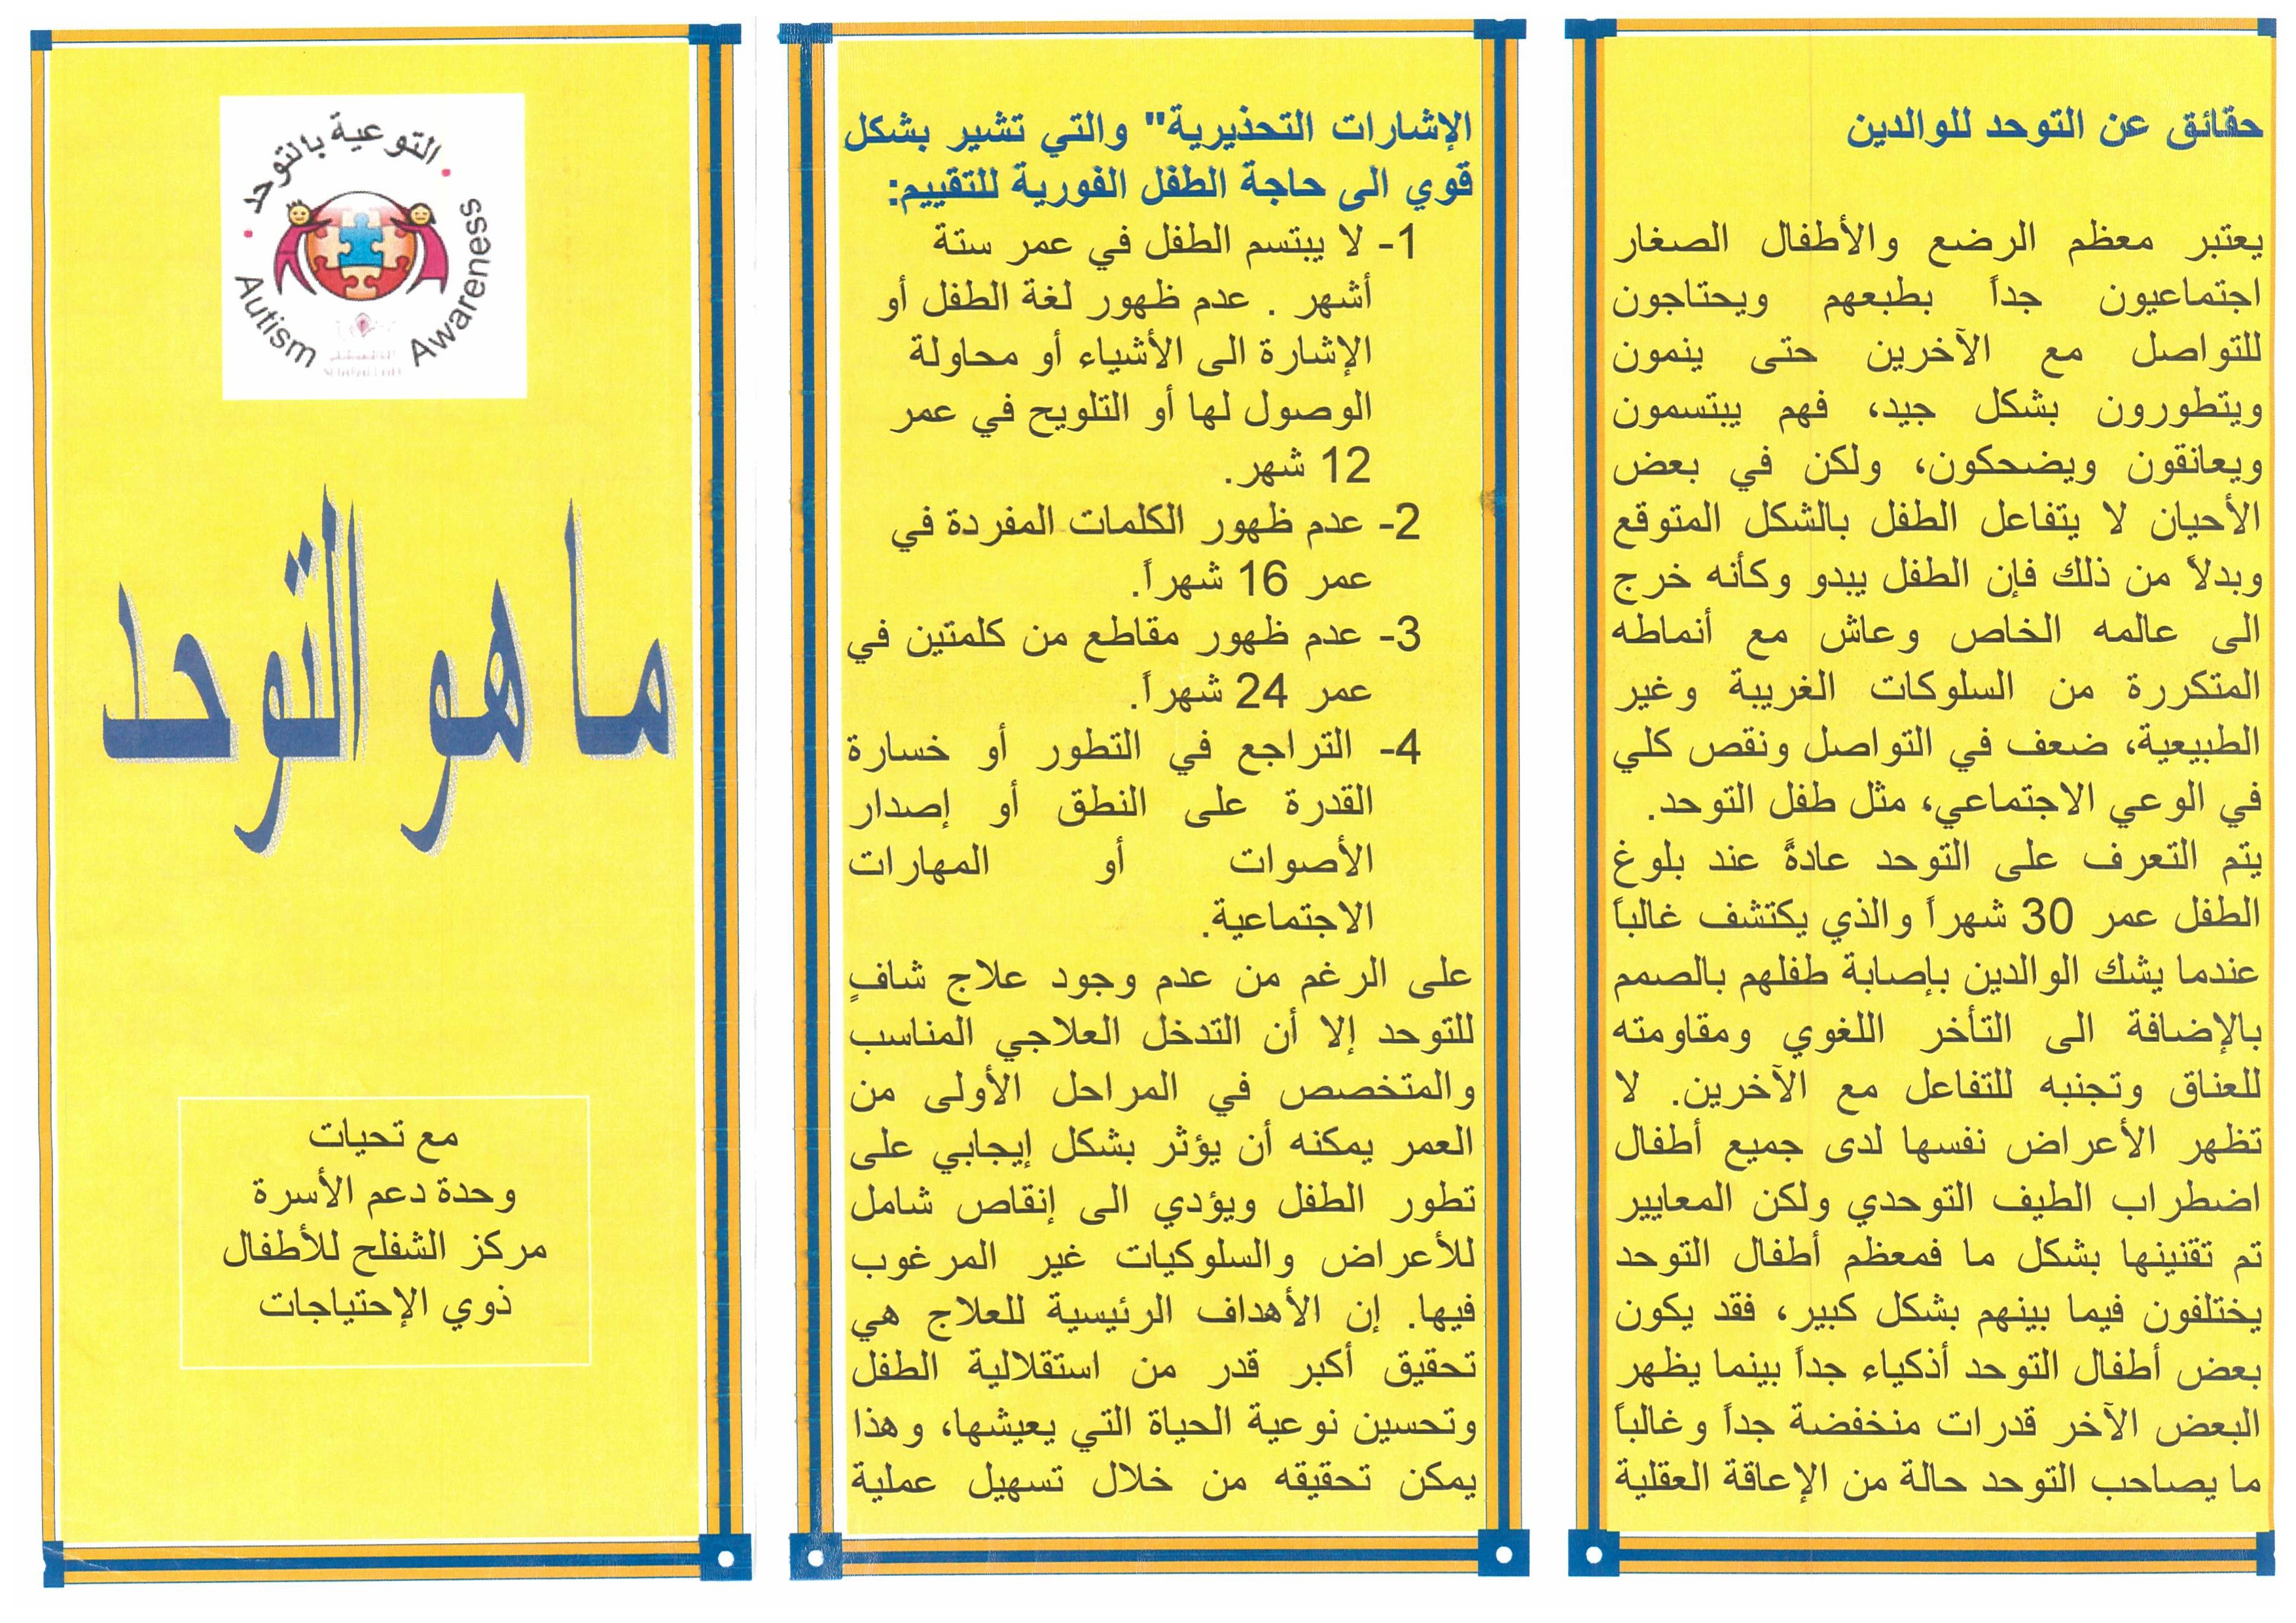 حقائق عن التوحد للوالدين
يعتبر معظم الرضع والأطفال الصغار
اجتماعيون جداً بطبعهم ويحتاجون
للتواصل مع الآخرين حتى ينمون
ويتطورون بشكل جيد، فهم يبتسمون
ويعانقون ويضحكون، ولكن في بعض
الأحيان لا يتفاعل الطفل بالشكل المتوقع
وبدلاً من ذلك فإن الطفل يبدو وكأنه خرج
الى عالمه الخاص وعاش مع أنماطه
المتكررة من السلوكات الغريبة وغير
الطبيعية، ضعف في التواصل ونقص كلي
في الوعي الاجتماعي، مثل طفل التوحد.
يتم التعرف على التوحد عادةً عند بلوغ
الطفل عمر 30 شهراً والذي يكتشف غالباً
عندما يشك الوالدين بإصابة طفلهم بالصمم
بالإضافة الى التأخر اللغوي ومقاومته
للعناق وتجنبه للتفاعل مع الآخرين. لا
تظهر الأعراض نفسها لدى جميع أطفال
اضطراب الطيف التوحدي ولكن المعايير
تم تقنينها بشكل ما فمعظم أطفال التوحد
يختلفون فيما بينهم بشكل كبير، فقد يكون
بعض أطفال التوحد أذكياء جداً بينما يظهر
البعض الآخر قدرات منخفضة جداً وغالباً
ما يصاحب التوحد حالة من الإعاقة العقلية
الإشارات التحذيرية" والتي تشير بشكل
قوي الى حاجة الطفل الفورية للتقييم:
1- لا يبتسم الطفل في عمر ستة
أشهر . عدم ظهور لغة الطفل أو
الإشارة الى الأشياء أو محاولة
الوصول لها أو التلويح في عمر
12 شهر.
2- عدم ظهور الكلمات المفردة في
عمر 16 شهراً.
3- عدم ظهور مقاطع من كلمتين في
عمر 24 شهراً.
4- التراجع في التطور أو خسارة
القدرة على النطق أو إصدار
الأصوات أو المهارات
الاجتماعية.
على الرغم من عدم وجود علاج شافٍ
للتوحد إلا أن التدخل العلاجي المناسب
والمتخصص في المراحل الأولى من
العمر يمكنه أن يؤثر بشكل إيجابي على
تطور الطفل ويؤدي الى إنقاص شامل
للأعراض والسلوكيات غير المرغوب
فيها. إن الأهداف الرئيسية للعلاج هي
تحقيق أكبر قدر من استقلالية الطفل
وتحسين نوعية الحياة التي يعيشها، وهذا
يمكن تحقيقه من خلال تسهيل عملية
التوعية بالتوحد
Autism Awareness
ما هو التوحد
مع تحيات
وحدة دعم الأسرة
مركز الشفلح للأطفال
ذوي الإحتياجات